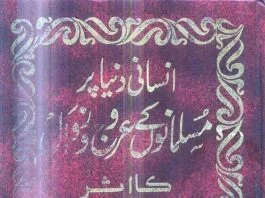 انسانی دنیا پر
مسلمانوں کے عروج و زوال
کا اثر